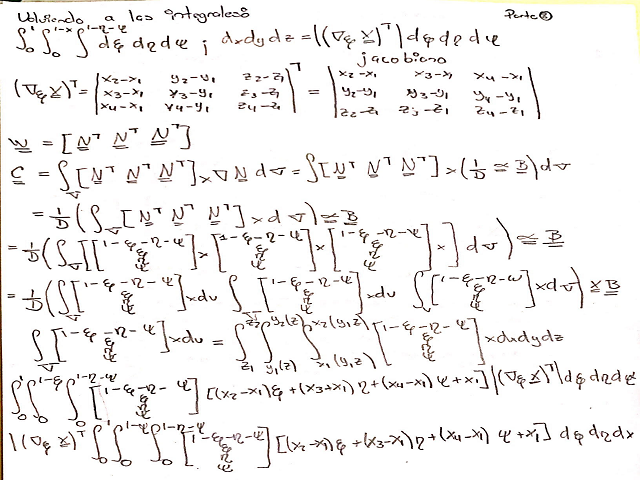 Volviendo a las integrales Parte ②
∫₀¹ ∫₀^{1-x} ∫^{1-η-ψ} dξ dη dψ ; dxdydz = |(∇ξ X)ᵀ| dξ dη dψ
jacobiano
(∇ξ X)ᵀ = | x₂-x₁ y₂-y₁ z₂-z₁ |ᵀ = | x₂-x₁ x₃-x₁ x₄-x₁ |
| x₃-x₁ y₃-y₁ z₃-z₁ | | y₂-y₁ y₃-y₁ y₄-y₁ |
| x₄-x₁ y₄-y₁ z₄-z₁ | | z₂-z₁ z₃-z₁ z₄-z₁ |
W = [Nᵀ Nᵀ Nᵀ]
C = ∫ᵥ [Nᵀ Nᵀ Nᵀ] x ∇ N dv = ∫ [Nᵀ Nᵀ Nᵀ] x (1/D ∝ B) dv
= 1/D (∫ᵥ [Nᵀ Nᵀ Nᵀ] x dv) ∝ B
= 1/D (∫ᵥ [[1-ξ-η-ψ ξ η ψ] x [1-ξ-η-ψ ξ η ψ] x [1-ξ-η-ψ ξ η ψ] x] dv) ∝ B
= 1/D (∫ᵥ [1-ξ-η-ψ ξ η ψ] x dv ∫ᵥ [1-ξ-η-ψ ξ η ψ] x dv ∫ᵥ [1-ξ-η-ψ ξ η ψ] x dv) ∝ B
∫ᵥ [1-ξ-η-ψ ξ η ψ] x dv = ∫_{z₁}^{z₂} ∫_{y₁(z)}^{y₂(z)} ∫_{x₁(y,z)}^{x₂(y,z)} [1-ξ-η-ψ ξ η ψ] x dxdydz
∫₀¹ ∫₀^{1-ξ} ∫₀^{1-η-ψ} [1-ξ-η-ψ ξ η ψ] [(x₂-x₁)ξ + (x₃+x₁)η + (x₄-x₁)ψ + x₁] |(∇ξ X)ᵀ| dξ dη dψ
|(∇ξ X)ᵀ ∫₀¹ ∫₀^{1-ψ} ∫₀^{1-η-ψ} [1-ξ-η-ψ ξ η ψ] [(x₂-x₁)ξ + (x₃-x₁)η + (x₄-x₁)ψ + x₁] dξ dη dx